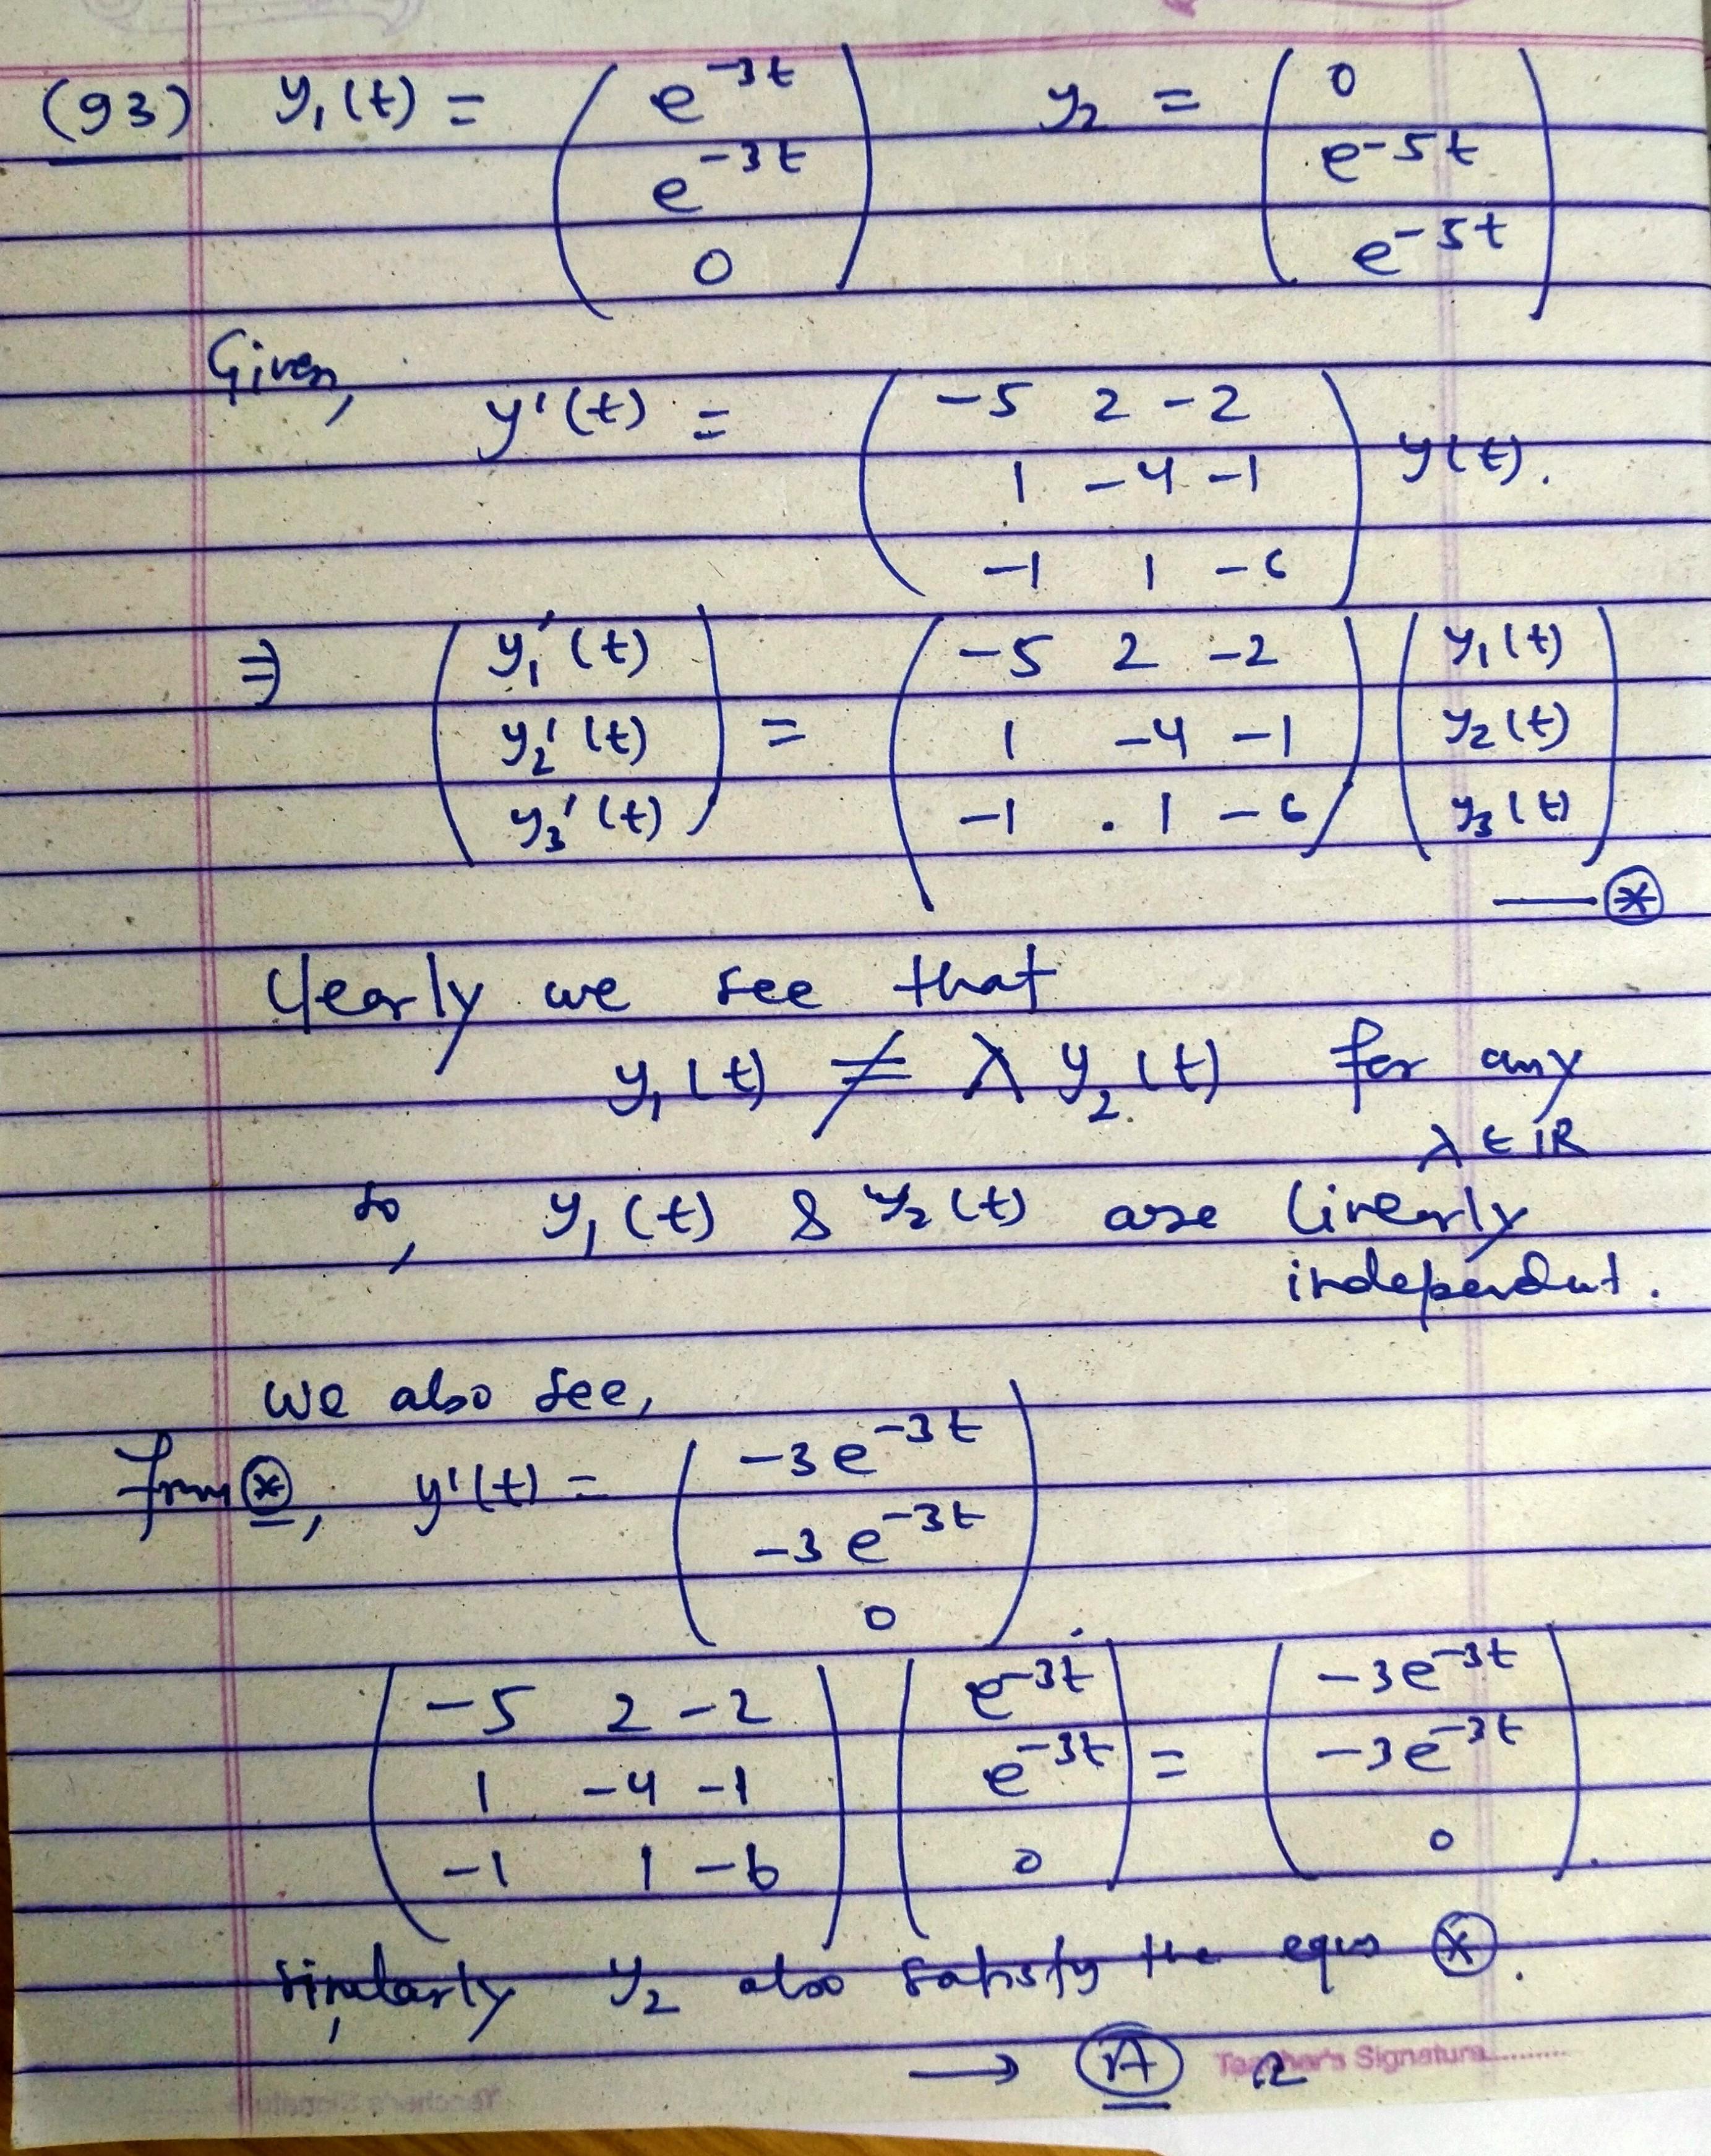 (93) y₁(t) = ( e^{-3t} e^{-3t} 0 ) y₂ = ( 0 e^{-5t} e^{-5t} )
Given,
y'(t) = ( -5 2 -2 1 -4 -1 -1 1 -6 ) y(t).
⇒ ( y₁'(t) y₂'(t) y₃'(t) ) = ( -5 2 -2 1 -4 -1 -1 . 1 -6 ) ( y₁(t) y₂(t) y₃(t) )
— ⊛
Clearly we see that
y₁(t) ≠ λ y₂(t) for any
λ ∈ IR
so, y₁(t) & y₂(t) are linearly
independent.
we also see,
from ⊛, y'(t) = ( -3e^{-3t} -3e^{-3t} 0 )
( -5 2 -2 1 -4 -1 -1 1 -6 ) ( e^{-3t} e^{-3t} 0 ) = ( -3e^{-3t} -3e^{-3t} 0 ).
similarly, y₂ also satisfy the eqns ⊛.
→ (A)
Teacher's Signature..........